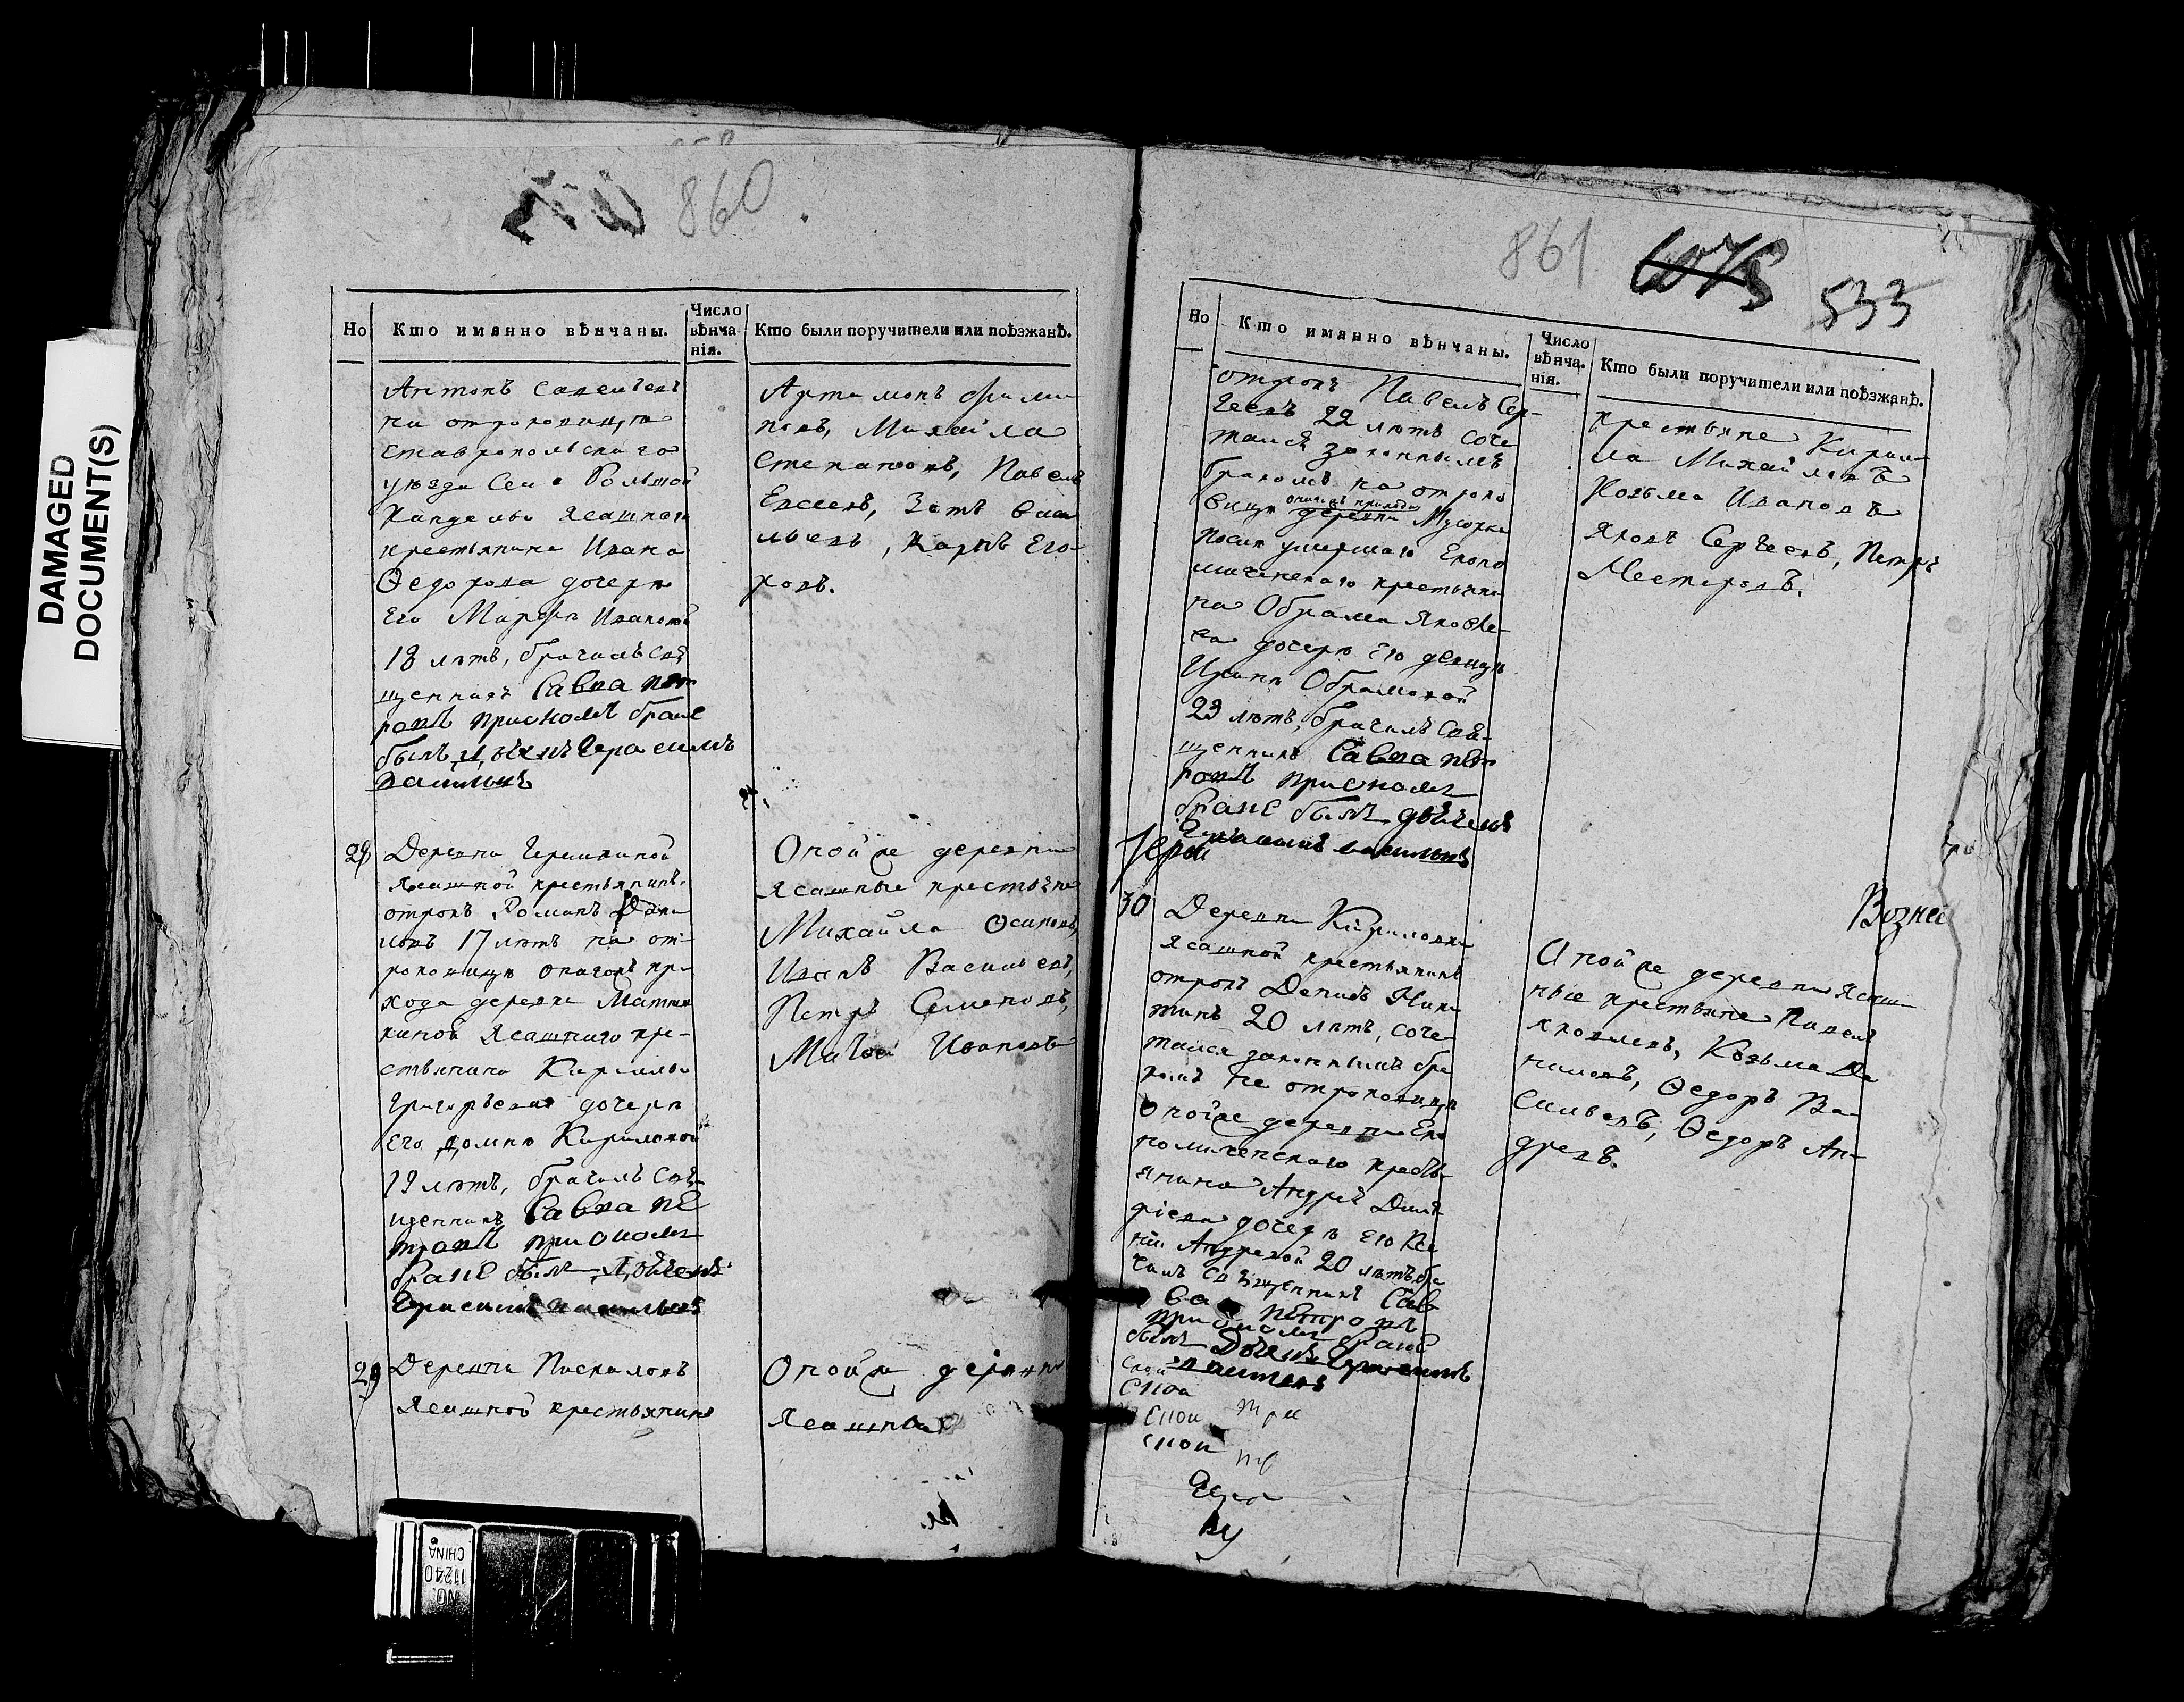 DAMAGED
DOCUMENT(S)
860
Но
Кто имянно вѣнчаны.
Число
вѣнча-
нія.
Кто были поручители или поѣзжанѣ.
Антонъ Савельевъ
на отроковицѣ
ставропольскаго
уѣзда Села Большой
Кандалы ясашнаго
крестьянина Ивана
Ѳедорова дочери
Его Марфѣ Ивановой
18 лѣтъ, бралчилъ свя
щенникъ Савва пет
ровъ приономъ браке
былъ дьячекъ Герасимъ
васильевъ
Артамонъ
новъ, Михайла
Степановъ, Павелъ
Евсеевъ, Зотъ Васи
льевъ, Карпъ Его-
ровъ.
28
Деревни
ясашной крестьянинъ
отрокъ Романъ Дани
ловъ 17 лѣтъ на от-
роковицѣ оногожъ при
хода деревни
киной ясашного кре-
стьянина Кирилы
Григорьева дочери
Его Домнѣ Кириловой
19 лѣтъ, брачилъ свя-
щенникъ Савва пе
тровъ приономъ
браке былъ дьячекъ
Герасимъ васильевъ
Оной же деревни
ясашные крестьяне
Михайла Осиповъ,
Иванъ Васильевъ,
Петръ Семеновъ,
Ивановъ
29
Деревни
Ясашной крестьянинъ
Оной же деревни
Ясашные
861
6075
533
Но
Кто имянно вѣнчаны.
Число
вѣнча-
нія.
Кто были поручители или поѣзжанѣ.
отрокъ Павелъ Сер-
геевъ 22 лѣтъ соче
тался законнымъ
бракомъ на отроко
вицѣ деревни Мусорки
после умершаго Еконо
мическаго крестьяни
на Обрама Яковле-
ва дочерю Его девицѣ
Ирине Обрамовой
23 лѣтъ, брачилъ свя-
щенникъ Савва пет
ровъ приономъ
браке былъ дьячекъ
Герасимъ васильевъ
крестьяне Кирил-
ла Михайловъ
Козьма Ивановъ
Яковъ Сергеевъ, Петръ
Нестеровъ.
30
Деревни Кириловки
ясашной крестьянинъ
отрокъ Денисъ Ники
тинъ 20 лѣтъ, соче-
тался законнымъ бра
комъ на отроковицѣ
оной же деревни Эко
номическаго крестьь-
янина Андрея Дмит-
ріева дочери Его Ксе
ніи Андревой 20 лѣтъ, бра
чилъ священникъ Сав
ва петровъ
приономъ браке
былъ Дьячекъ Герасимъ
васильевъ
Оной же деревни Ясаш-
ные крестьяне Павелъ
Яковлевъ, Козьма Да
ниловъ, Ѳедоръ Ва-
сильевъ, Ѳедоръ Ан-
древъ.
Возне
Сной
Сной
Сной
при
NO.
11240
CHINA